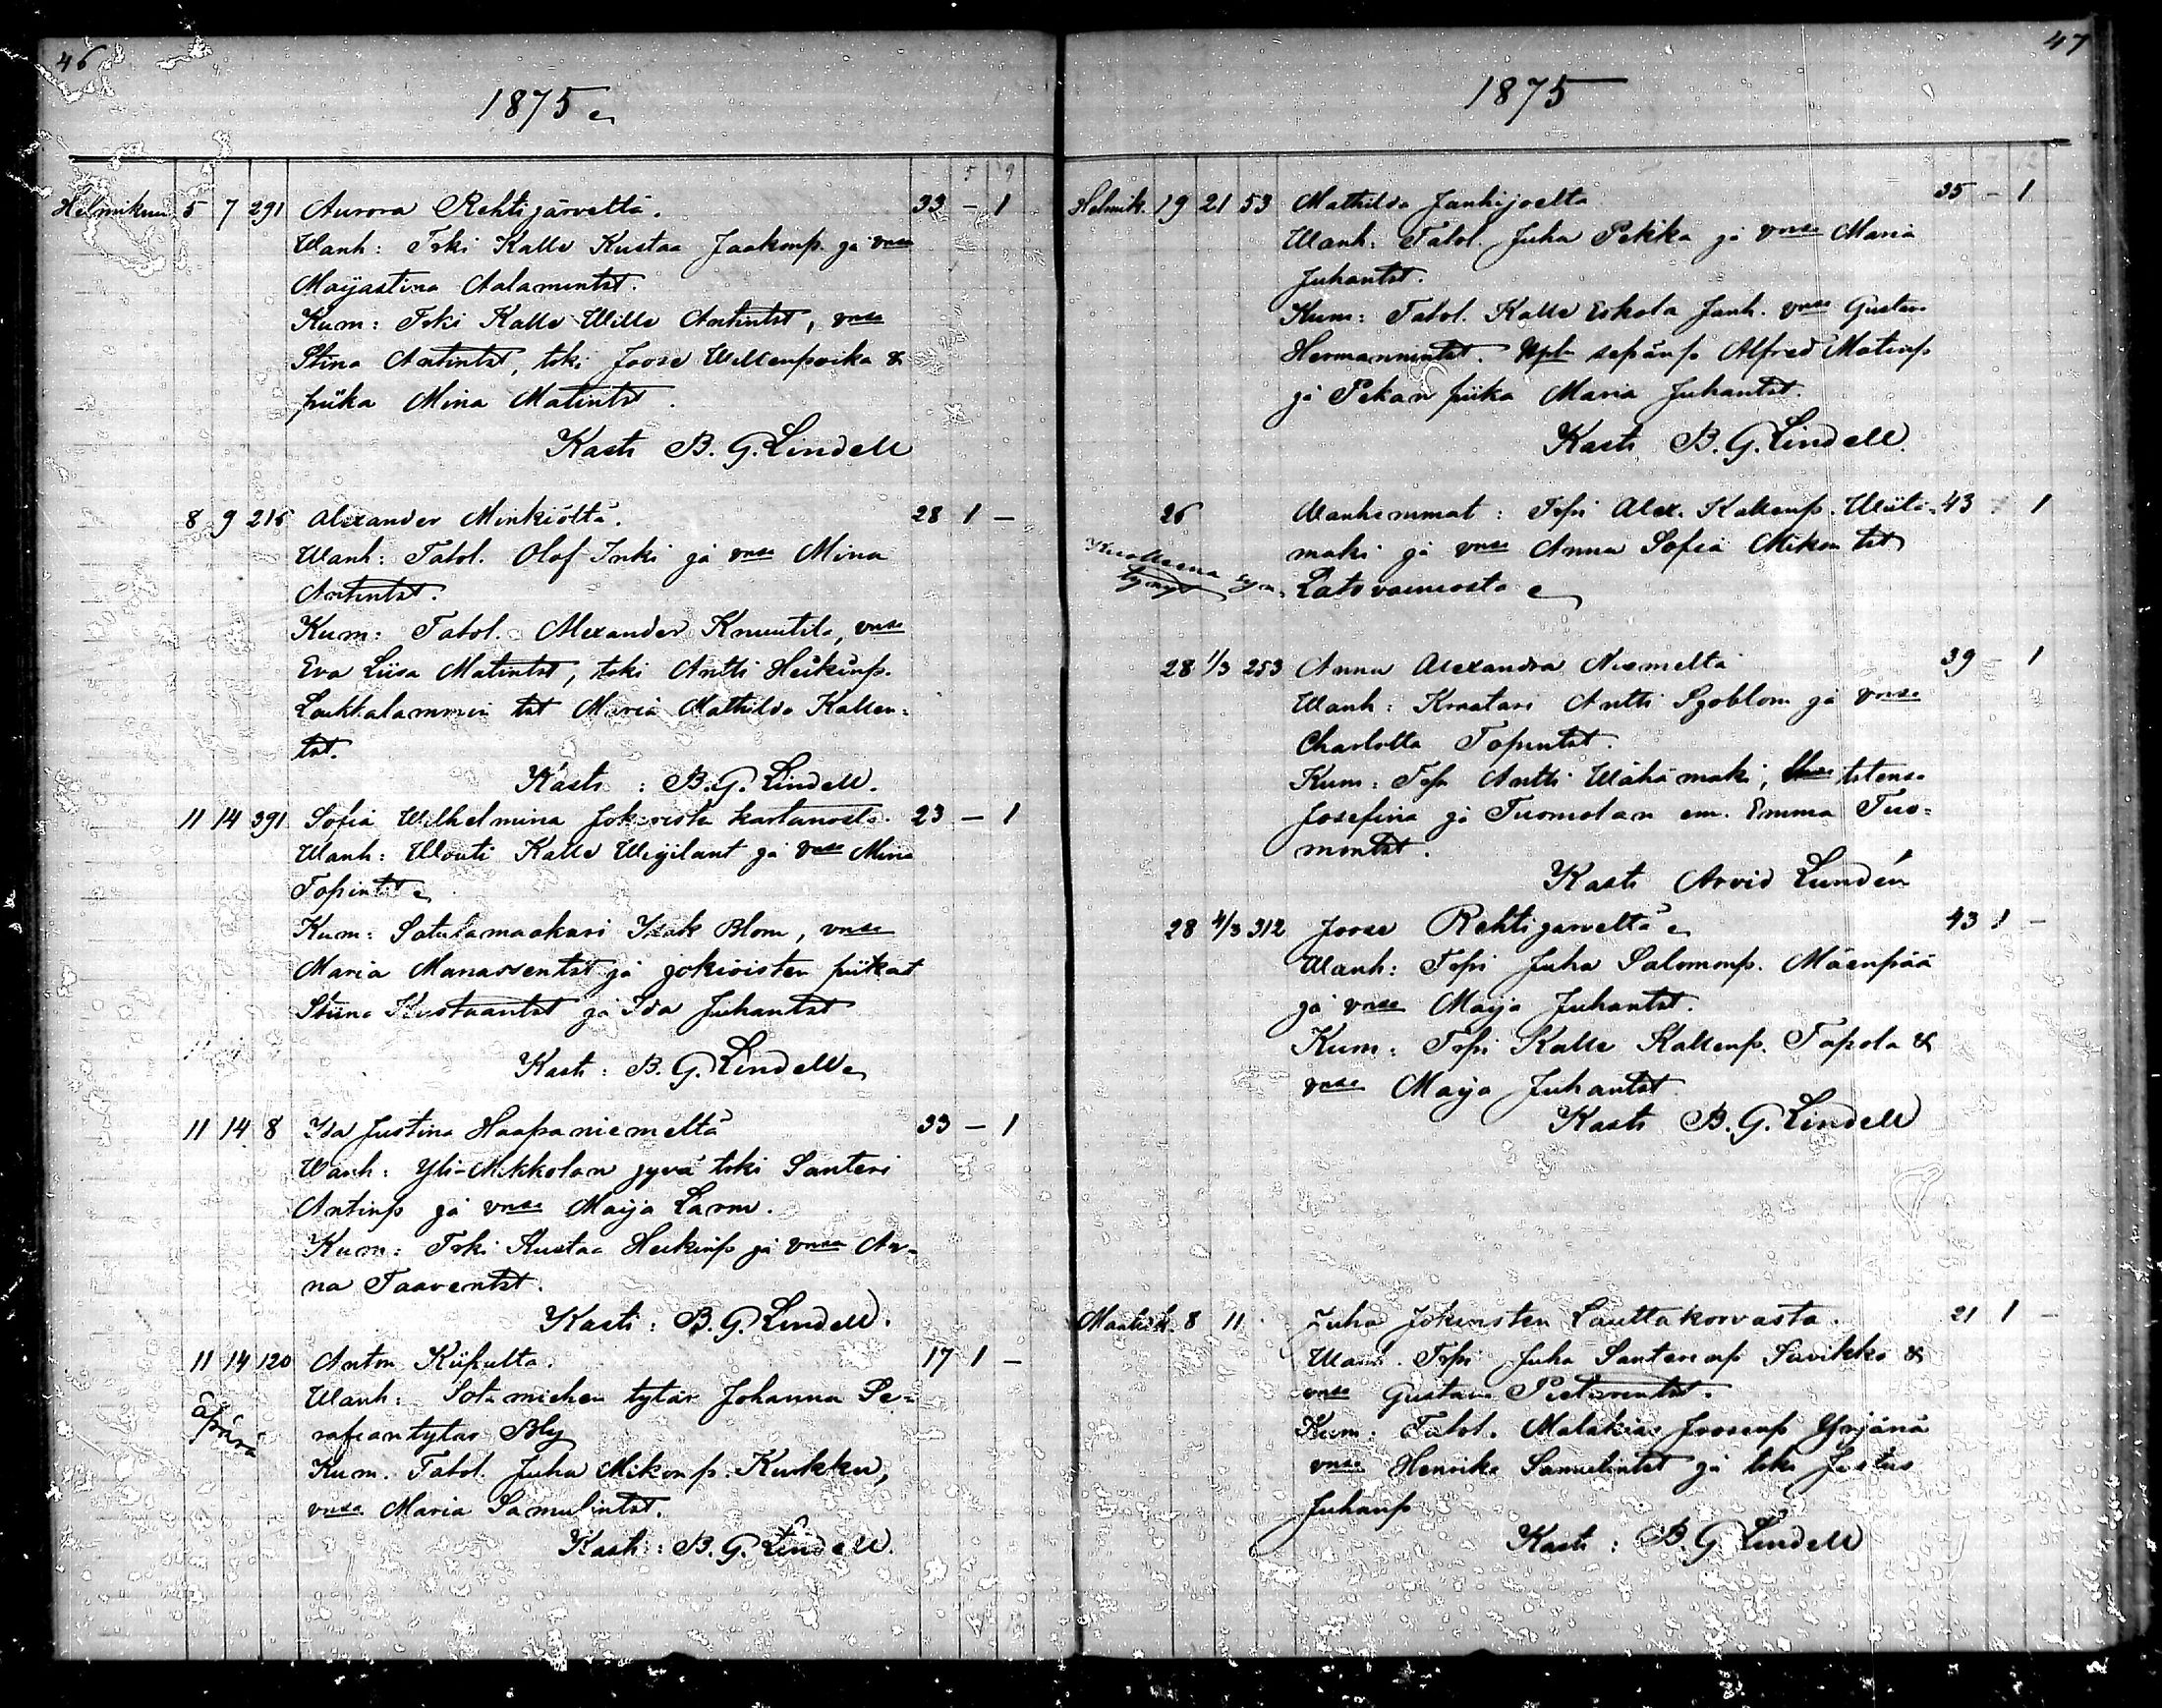 46
1875
5 9
Helmikuu 5 7 291 Aurora Rehtijärveltä. 33 - 1
Wanh: Trki Kalle Kustaa Jaakonp. ja vnsa
Maijastina Aalamintst.
Kum: Trki Kalle Wille Antintst, vnsa
Stina Antintst, trki Joose Willenpoika &
piika Mina Matintst.
Kasti B. G. Lindell
8 9 216 Alexander Minkiöltä. 28 1 -
Wanh: Talol. Olof Inki ja vnsa Mina
Antintst.
Kum: Talol. Alexander Knuutila, vnsa
Eva Liisa Matintst, trki Antti Heikinp.
Laukkalammin tst Maria Mathilda Kallen-
tst.
Kasti: B. G. Lindell.
11 14 391 Sofia Wilhelmina Jokioisten kartanosta. 23 - 1
Wanh: Wouti Kalle Wigilant ja vnsa Mina
Topintst
Kum: Satulamaakari Isak Blom, vnsa
Maria Manassentst ja jokioisten piikat
Stiina Kustaantst ja Ida Juhantst
Kasti: B. G. Lindell
11 14 8 Ida Justina Haapaniemeltä 33 - 1
Wanh: Yli-Mikkolan jyvä trki Santeri
Antinp ja vnsa Maija Larm.
Kum: Trki Kustaa Heikinp ja vnsa An-
na Taaventst.
Kasti: B. G. Lindell.
11 14 120 Anton Kiipulta. 17 1 -
äpärä
Wanh: Sotamiehen tytär Johanna Se-
rafiantytär Bly
Kum. Talol. Juha Mikonp. Kurkku,
vnsa Maria Samulintst.
Kasti: B. G. Lindell.
47
1875
7 12
Helmik. 19 21 53 Mathilda Jänhijoelta 35 - 1
Wanh: Talol. Juha Pekika ja vnsa Maria
Juhantst.
Kum: Talol. Kalle Eskola Janh. vnsa Gustava
Hermannintst. sepänp Alfred Matinp
ja Pekan piika Maria Juhantst.
Kasti B. G. Lindell.
26 Wanhemmat: Trpi Alex. Kallenp. Wiita- 43 1
mäki ja vnsa Anna Sofia Mikon tst
Kuolleena syn. Latovainiosta
28 1/3 253 Anna Alexandra Niemeltä 39 - 1
Wanh: Kraatari Antti Sjöblom ja vnsa
Charlotta Topintst.
Kum: Trp Antti Wähämäki, tstensa
Josefina ja Tuomolan em. Emma Tuo-
montst.
Kasti Arvid Lundén
28 4/3 312 Joose Rehtijärveltä 43 1 -
Wanh: Trpi Juha Salomonp. Mäenpää
ja vnsa Maija Juhantst.
Kum: Trpi Kalle Kallenp. Tapola &
vnsa Maija Juhantst
Kasti B. G. Lindell
Maalisk. 8 11 Juha Jokioisten Lauttakorvasta. 21 1 -
Wanh. Trpi Juha Santerinp Suvikko &
vnsa Gustava Pietarintst.
Kum: Talol. Malakias Joosenp Yrjänä
vnsa Henrika Samulintst ja trki Justus
Juhanp
Kasti: B. G. Lindell